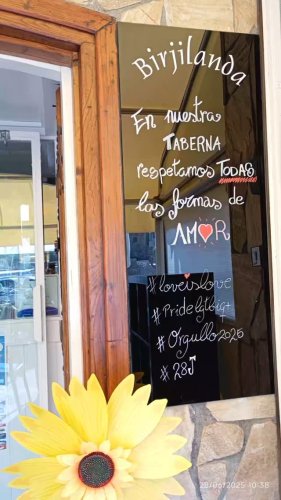 Birjilanda
En nuestra
TABERNA
respetamos TODAS
las formas de
AMOR
#loveislove
#Pridelgtbiq+
#Orgullo2025
#28J
28/06/2025 10:38